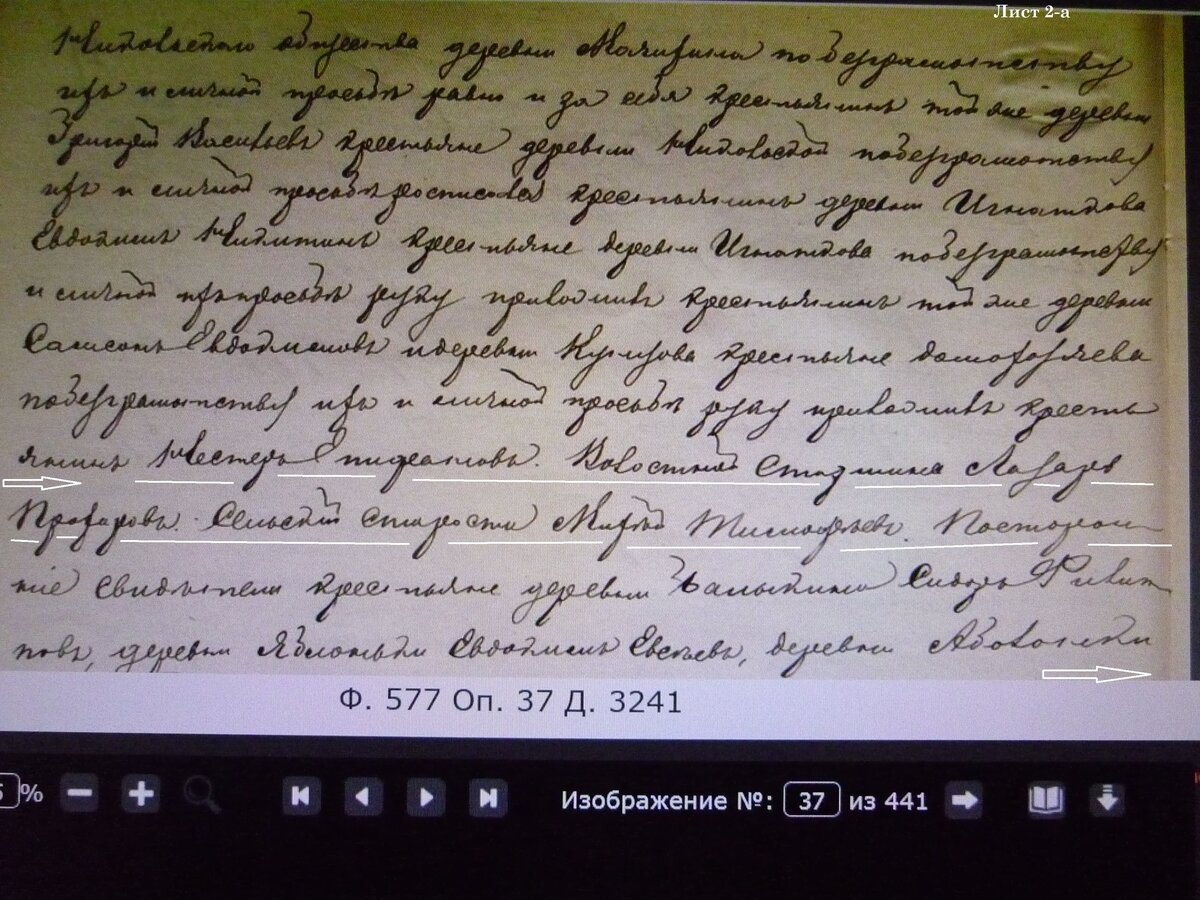 Лист 2-а
общества деревни по безграмотству
ихъ и личной просьбѣ равно и за себя крестьянинъ той же деревни
Григорій Васильевъ крестьяне деревни по безграмотству
ихъ и личной просьбѣ росписался крестьянинъ деревни Игнаткова
Евдокимъ Никитинъ крестьяне деревни Игнаткова по безграмотству
и личной ихъ просьбѣ руку приложилъ крестьянинъ той же деревни
Самсонъ Евдокимовъ и деревни крестьяне домохозяева
по безграмотству ихъ и личной просьбѣ руку приложилъ кресть
янинъ Нестеръ Волостной Старшина Лазарь
Прохоровъ. Сельскій Староста Тимофѣевъ. Посторон
ніе Свидѣтели крестьяне деревни Сидоръ Филип
повъ, деревни Яблоньки Евдокимъ Евсѣевъ, деревни
Ф. 577 Оп. 37 Д. 3241
%
Изображение №: 37 из 441